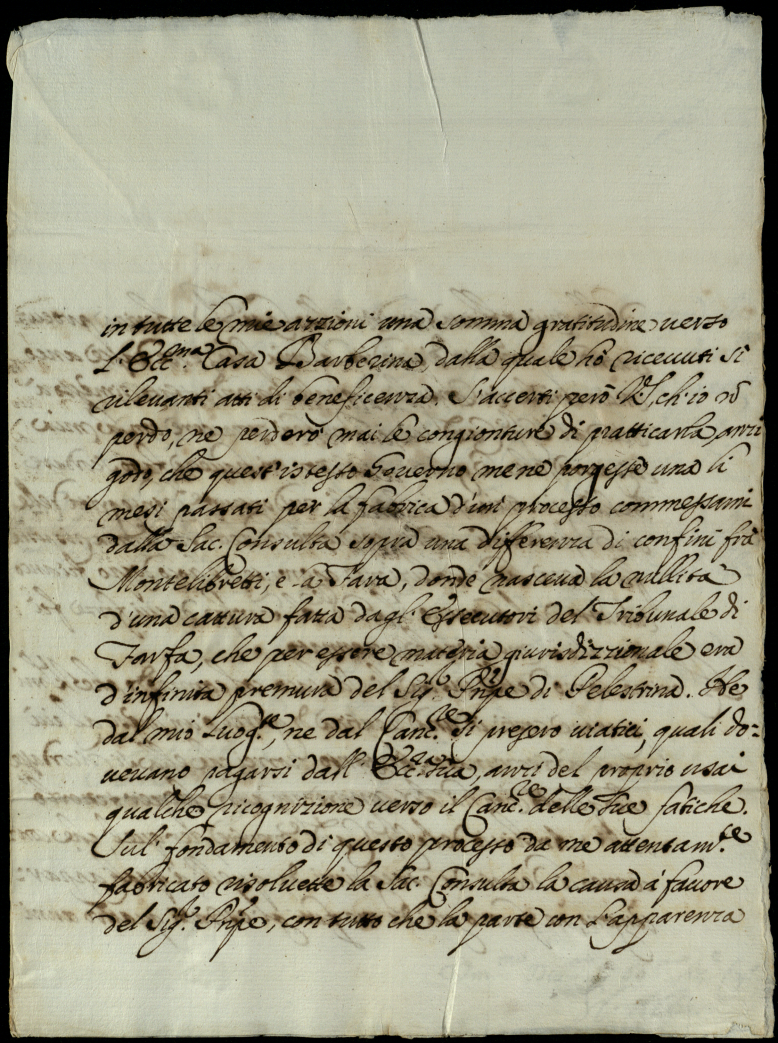 in tutte le mie azzioni una somma gratitudine verso
l'Ecc.ma Casa Barberina, dalla quale hò ricevuti sì
rilevanti atti di beneficenza. S'accerti però VS, ch'io nō
perdo, ne perderò mai le congionture di pratticarla, anzi
godo, che quest'istesso Governo me ne porgesse una li
mesi passati per la fabrica d'un processo commessami
dalla Sac. Consulta sopra una differenza di confini frà
Montelibretti, e la Fara, donde nasceva la nullità
d'una cattura fatta dagl'essecutori del Tribunale di
Farfa, che per essere materia giurisdizzionale era
d'infinita premura del Sig.r Prñpe di Pelestrina. Ne
dal mio Luog.te, ne dal Canc.re si presero viatici, quali do=
vevano pagarsi dall'Ecc.za Sua, anzi del proprio usai
qualche ricognizione verso il Canc.re delle sue fatiche.
Sul fondamento di questo processo da me attentam.te
fabbricato risolvette la Sac. Consulta la causa à favore
del Sig.r Prñpe, con tutto che la parte con l'apparenza